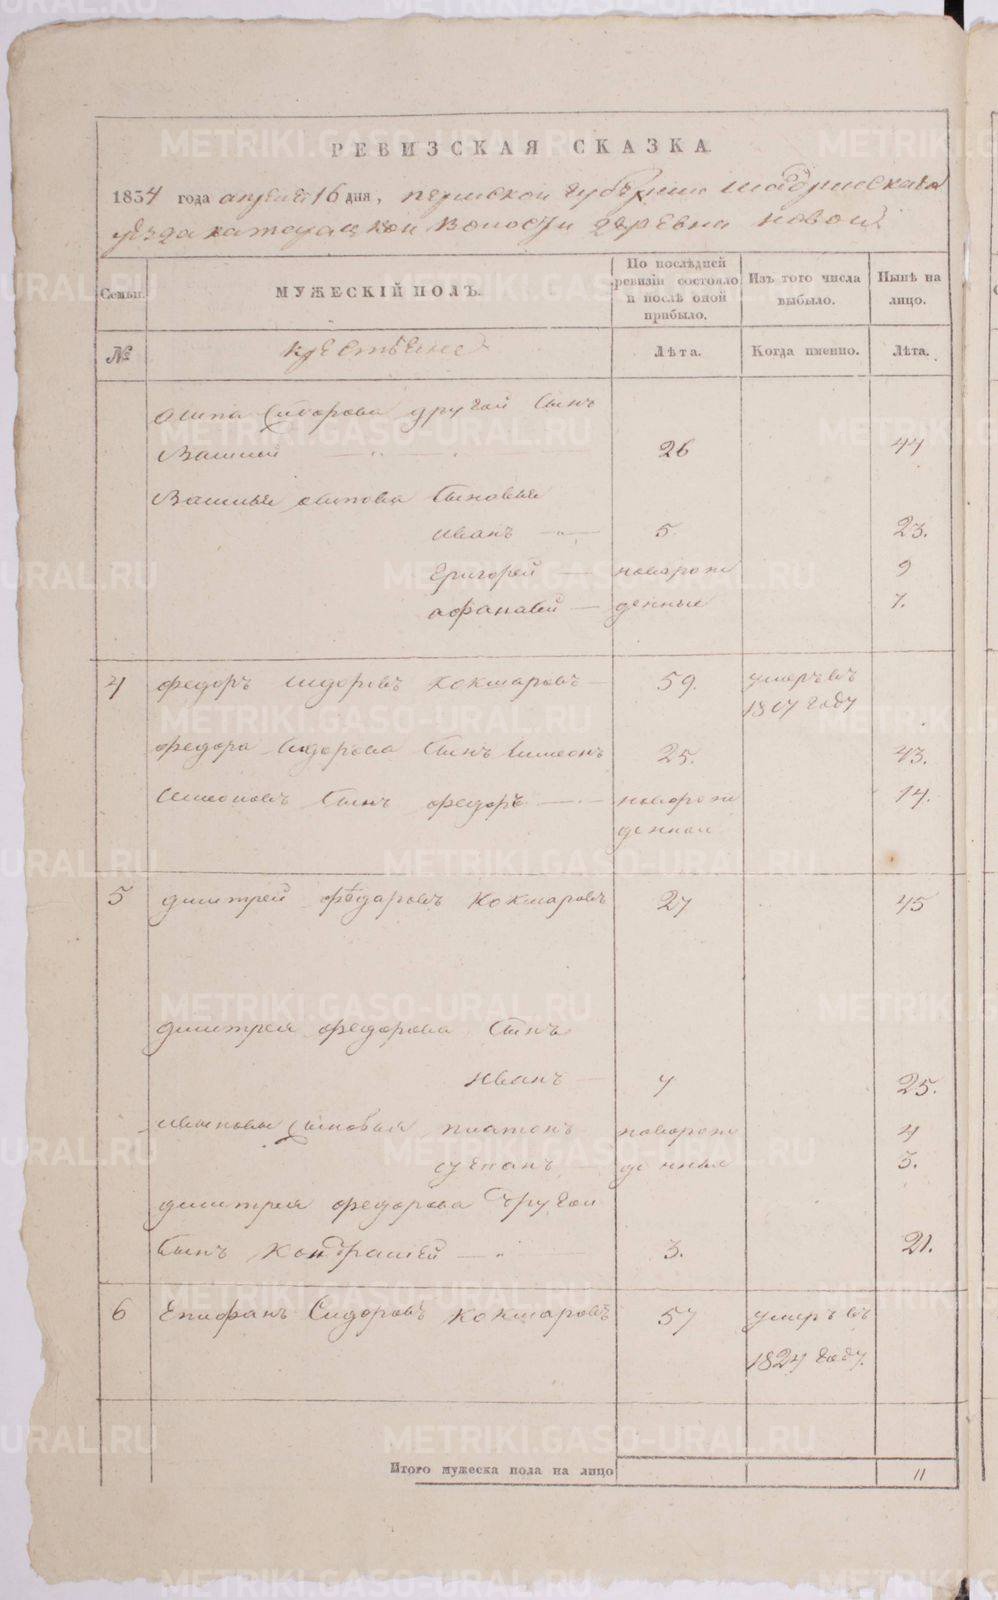 РЕВИЗСКАЯ СКАЗКА
1834 года апреля 16 дня, пермской губернии шадринскаго
уезда катайской волости деревни новой
Семьи.
МУЖЕСКІЙ ПОЛЪ.
По послѣдней ревизіи состояло и послѣ оной прибыло.
Изъ того числа выбыло.
Нынѣ на лицо.
№
крестьяне
Лѣта.
Когда именно.
Лѣта.
осипа Сидорова другой сынъ
Василий 26 44
Василья осипова сыновья
иванъ 5. 23.
григорей новорож 9
афанасей денные 7.
4 федоръ сидоровъ кокшаровъ 59. умеръ въ
1817 году
федора сидорова сынъ симеонъ 25. 43.
симеоновъ сынъ федоръ новорож 14.
денной
5 дмитрей федоровъ кокшаровъ 27 45
дмитрея федорова сынъ
иванъ 7 25.
ивановы сыновья платонъ новорож 4
степанъ денные 3.
дмитрея федорова другой
сынъ кондратей 3. 21.
6 Епифанъ Сидоровъ кокшаровъ 57 умеръ въ
1824 году.
Итого мужеска пола на лицо 11
METRIKI.GASO-URAL.RU